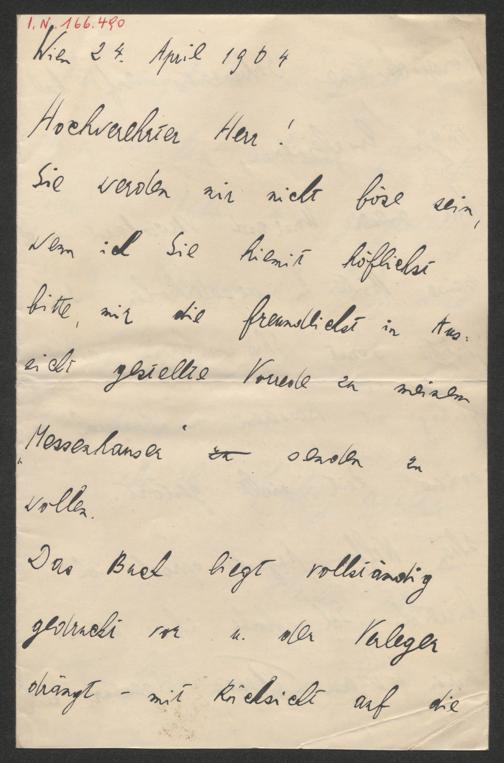 I.N. 166.490
Wien 24. April 1904
Hochverehrter Herr!
Sie werden mir nicht böse sein,
wenn ich Sie hiemit höflichst
bitte, mir die freundlichst in Aus=
sicht gestellte Vorrede zu meinem
„Messenhauser“ zu senden zu
wollen.
Das Buch liegt vollständig
gedruckt vor u. der Verleger
drängt – mit Rücksicht auf die